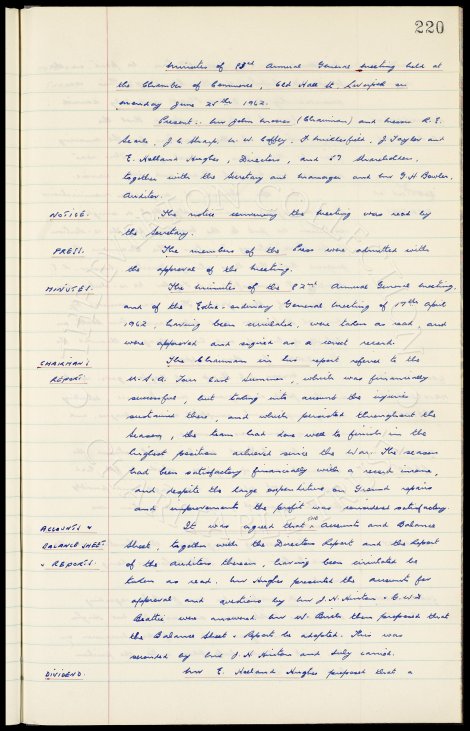 220
Minutes of 83rd Annual General Meeting held at
the Chamber of Commerce, Old Hall St, Liverpool on
Monday June 25th 1962.
Present:- Mr John Moores (Chairman) and Messrs R. E.
Searle, J. C. Sharp, W. Coffey, F. Micklesfield, J. Taylor and
E. Holland Hughes, Directors, and 57 Shareholders,
together with the Secretary and Manager and Mr G. H. Bowler,
Auditor.
NOTICE. The notice convening the Meeting was read by
the Secretary.
PRESS. The members of the Press were admitted with
the approval of the Meeting.
MINUTES. The Minutes of the 82nd Annual General Meeting,
and of the Extra-ordinary General Meeting of 17th April
1962, having been circulated, were taken as read, and
were approved and signed as a correct record.
CHAIRMAN'S The Chairman in his report referred to the
REPORT. U.S.A. Tour last Summer, which was financially
successful, but taking into account the injuries
sustained there, and which persisted throughout the
Season, the team had done well to finish in the
highest position achieved since the War. The season
had been satisfactory financially with a record income,
and despite the large expenditure on Ground repairs
and improvements the profit was considered satisfactory.
ACCOUNTS & It was agreed that the Accounts and Balance
BALANCE SHEET Sheet, together with the Directors Report and the Report
& REPORTS. of the Auditors thereon, having been circulated be
taken as read. Mr Hughes presented the accounts for
approval and questions by Mr J. H. Hinton & C.W.D
Beattie were answered. Mr W. then proposed that
the Balance Sheet & Report be adopted. This was
seconded by Mr J. H. Hinton and duly carried.
DIVIDEND. Mr E. Holland Hughes proposed that a